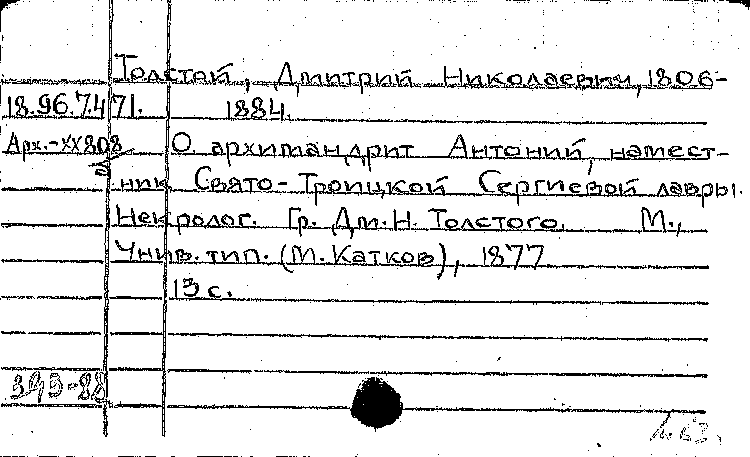 Толстой, Дмитрий Николаевич, 1806-
18.96.7.471. 1884.
Арх.-XX808 О. архимандрит Антоний, намест-
ник Свято-Троицкой Сергиевой лавры.
Некролог. Гр. Дм. Н. Толстого. М.,
Унив. тип. (М. Катков), 1877
13 с.